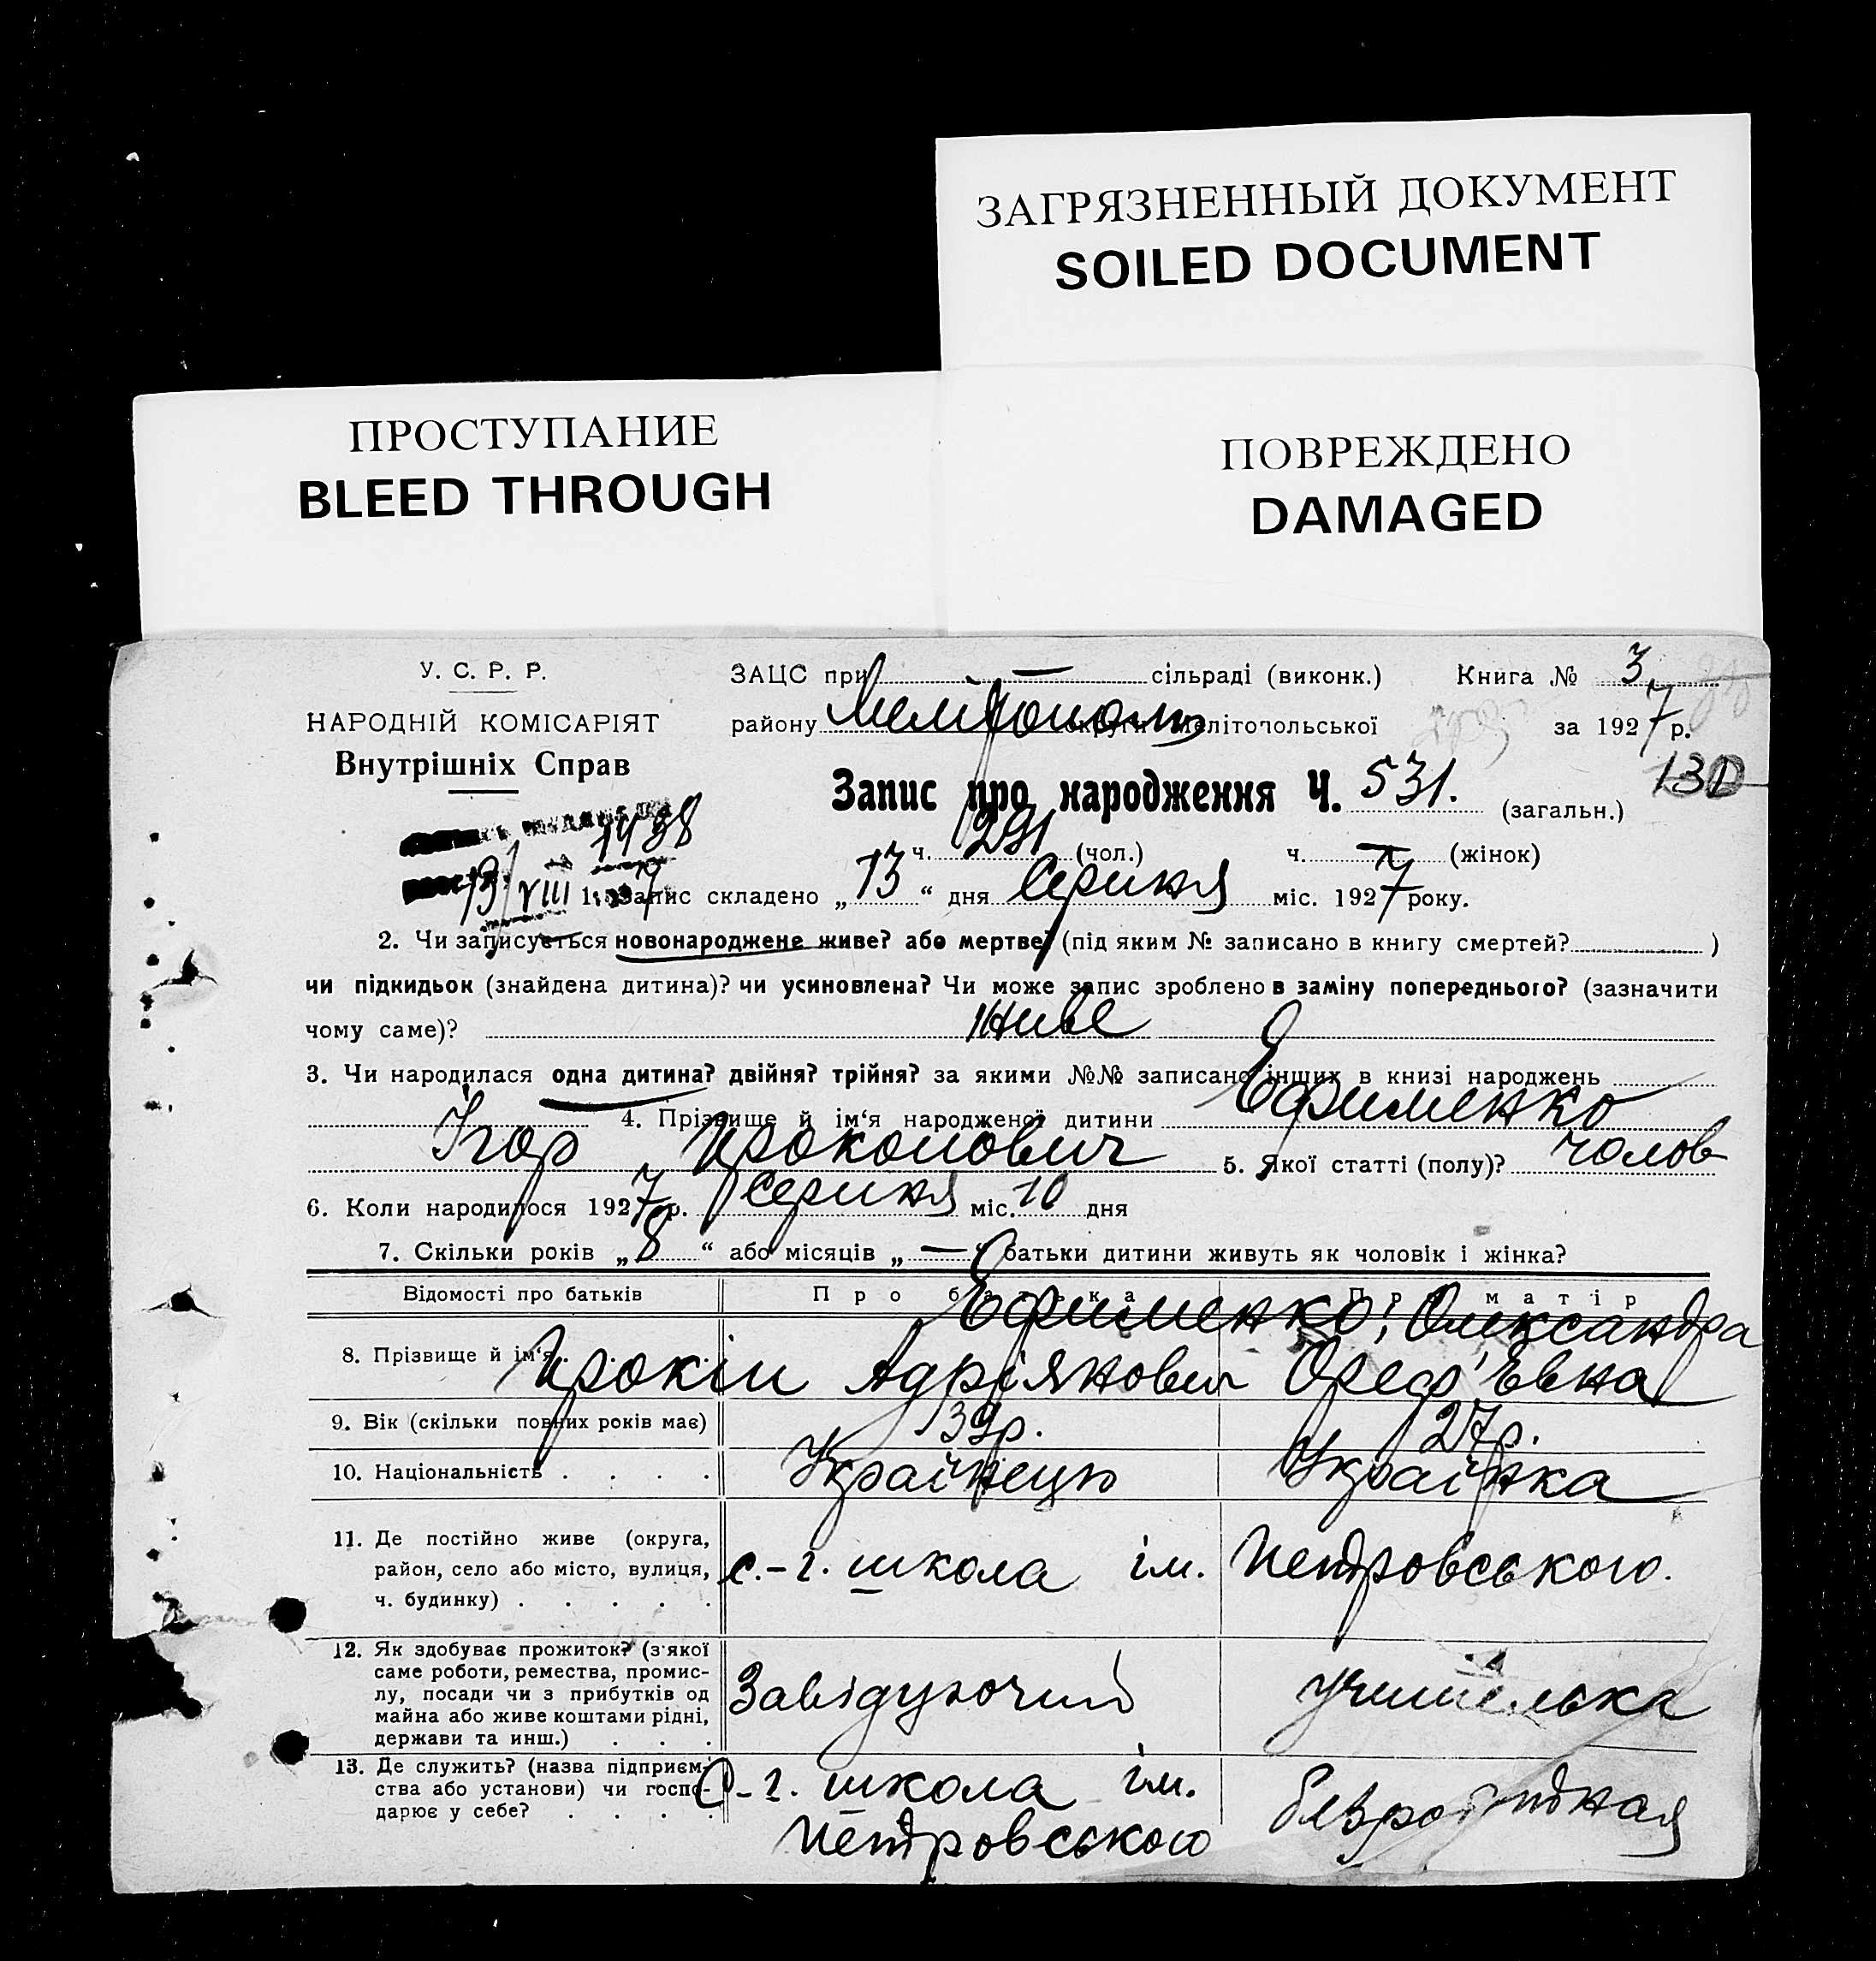 ЗАГРЯЗНЕННЫЙ ДОКУМЕНТ
SOILED DOCUMENT
ПРОСТУПАНИЕ
BLEED THROUGH
ПОВРЕЖДЕНО
DAMAGED
У. С. Р. Р.
НАРОДНІЙ КОМІСАРІЯТ
Внутрішніх Справ
ЗАЦС при — сільраді (виконк.) Книга № 3
району Мелітополь округи Мелітопольської за 1927 р.
130
Запис про народження Ч. 531. (загальн.)
1438
ч. 291 (чол.) ч. — (жінок)
13/VIII 7
1. Запис складено „13“ дня Серпня міс. 1927 року.
2. Чи записується новонароджене живе? або мертве? (під яким № записано в книгу смертей? )
чи підкидьок (знайдена дитина)? чи усиновлена? Чи може запис зроблено в заміну попереднього? (зазначити
чому саме)? живе
3. Чи народилася одна дитина? двійня? трійня? за якими №№ записано інших в книзі народжень
4. Прізвище й ім‘я народженої дитини Ефименко
Ігор Прокопович 5. Якої статті (полу)? чолов
6. Коли народилося 1927 р. Серпня міс. 10 дня
7. Скільки років „8“ або місяців „—“ батьки дитини живуть як чоловік і жінка?
Відомості про батьків Про батька Про матір
8. Прізвище й ім‘я . Ефименко, Олександра
Прокіп Адріянович Ореф'євна
9. Вік (скільки повних років має) 39 р. 27 р.
10. Національність . . . . . Українець Українка
11. Де постійно живе (округа,
район, село або місто, вулиця,
ч. будинку) . . . . .
с.-г. школа ім. Петровського.
12. Як здобуває прожиток? (з якої
саме роботи, ремества, промис-
лу, посади чи з прибутків од
майна або живе коштами рідні,
держави та инш.) . . .
Завідуючий учителька
13. Де служить? (назва підприєм-
ства або установи) чи госпо-
дарює у себе? . . . .
С-г. школа ім.
Петровського